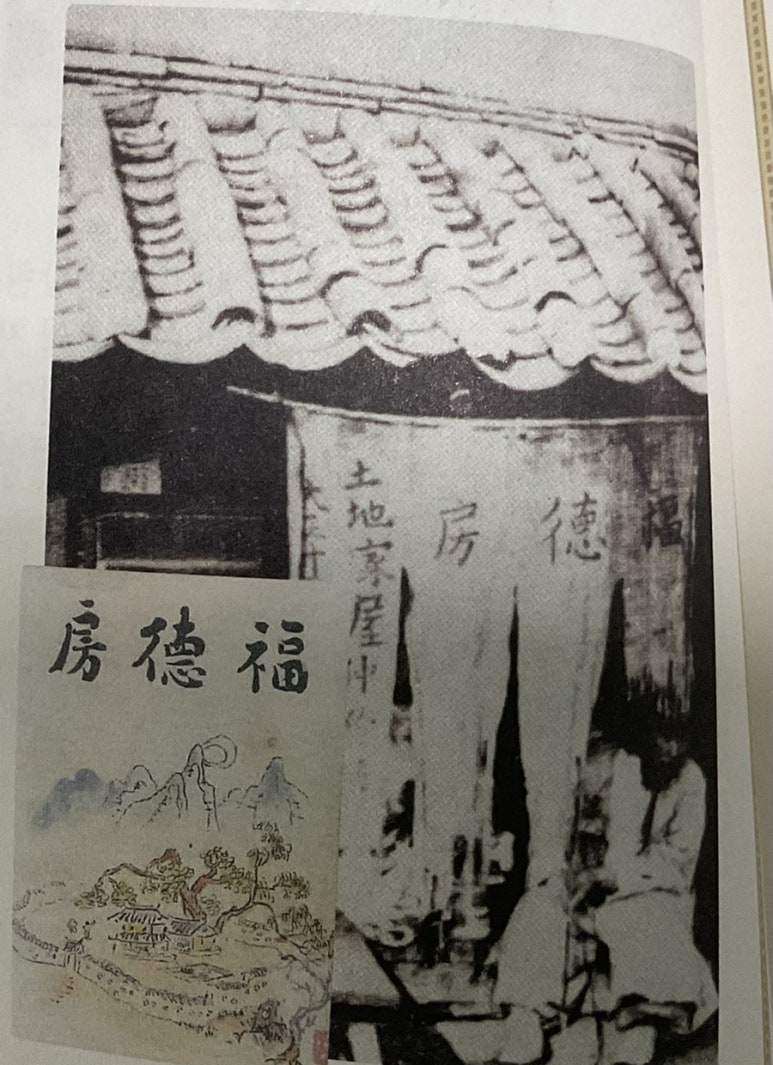 福德房
土地家屋仲
福德房